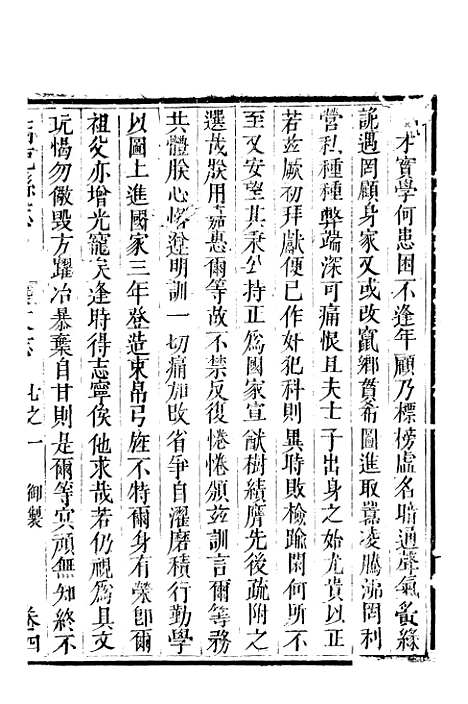 才實學何患困不逢年顧乃標榜虛名暗通聲氣夤緣
詭遇罔顧身家又或改竄鄉貫希圖進取囂凌騰沸罔利
營私種種弊端深可痛恨且夫士子出身之始尤貴以正
若茲厥初拜獻便已作奸犯科則異時敗檢踰閑何所不
至又安望其秉公持正爲國家宣猷樹績膺先後疏附之
選哉朕用嘉惠爾等故不禁反復惓惓頒茲訓言爾等務
共體朕心恪遵明訓一切痛加改省爭自濯磨積行勤學
以圖上進國家三年登造束帛弓旌不特爾身有榮卽爾
祖父亦增光寵矣逢時得志寧俟他求哉若仍視爲具文
玩愒勿儆毀方躍冶暴棄自甘則是爾等冥頑無知終不
縣志 藝文志 七之一 御製 卷四